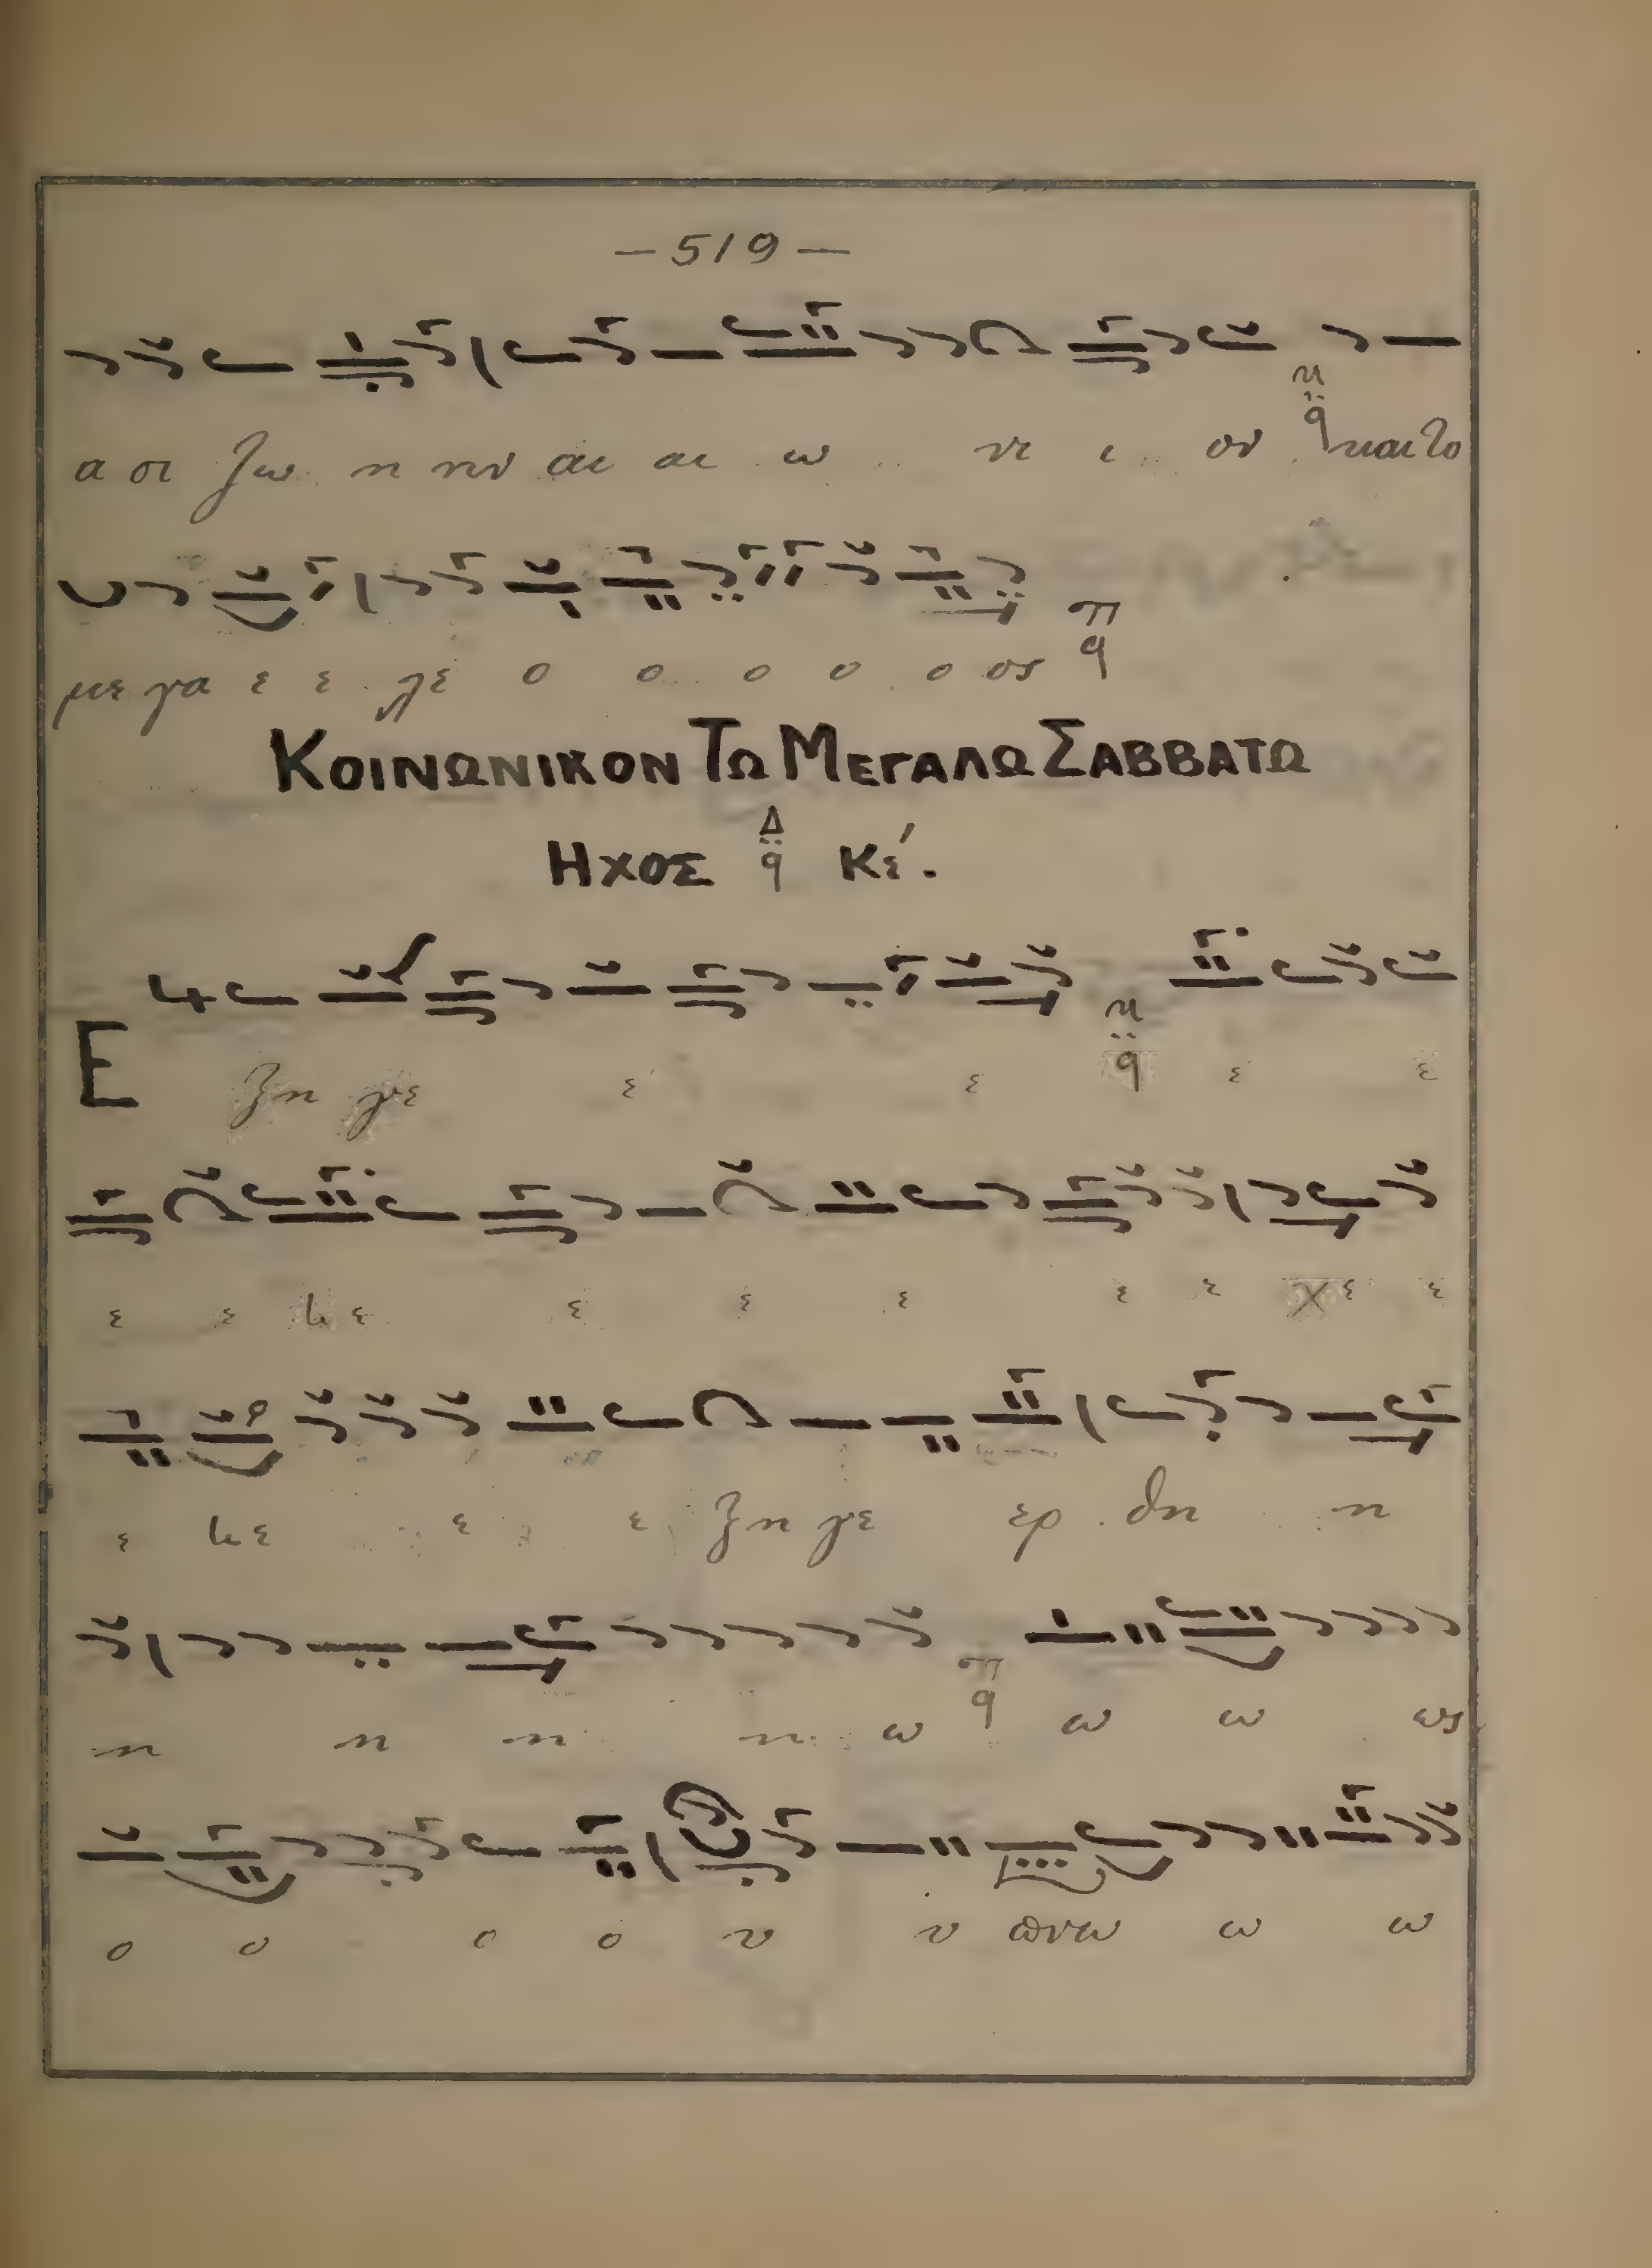 — 519 —
α σι ζω η ην αι αι ω νι ι ον και το
με γα ε ε λε ο ο ο ο ο ος
ΚΟΙΝΩΝΙΚΟΝ ΤΩ ΜΕΓΑΛΩ ΣΑΒΒΑΤΩ
ΗΧΟΣ Δ q Κέ.
Ε ξη γε ε ε ε ε
ε ε ε ε ε ε ε χε ε
ε ε ε ε ξη γε ερ θη η
η η η η ω ω ω ως
ο ο ο ο υ υ πνω ω ω